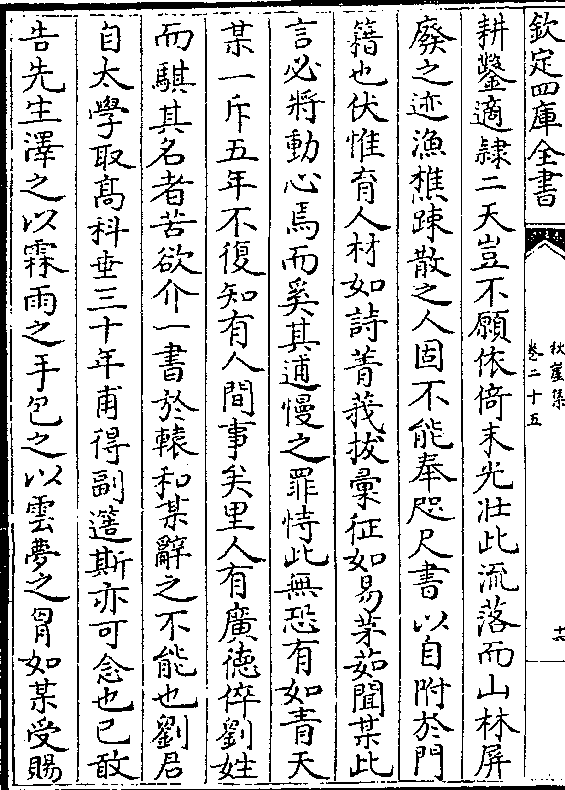 欽定四庫全書
秋崖集
卷二十五
十六
耕鑿適隷二天豈不願依倚末光壯此流落而山林屏
廢之迹漁樵踈散之人固不能奉咫尺書以自附於門
籍也伏惟育人材如詩菁莪拔彙征如易茅茹聞某此
言必將動心焉而奚其逋慢之罪恃此無恐有如青天
某一斥五年不復知有人間事矣里人有廣德倅劉姓
而騏其名者苦欲介一書於轅和某辭之不能也劉君
自太學取髙科垂三十年甫得副邅斯亦可念也已敢
告先生澤之以霖雨之手包之以雲夢之胷如某受賜